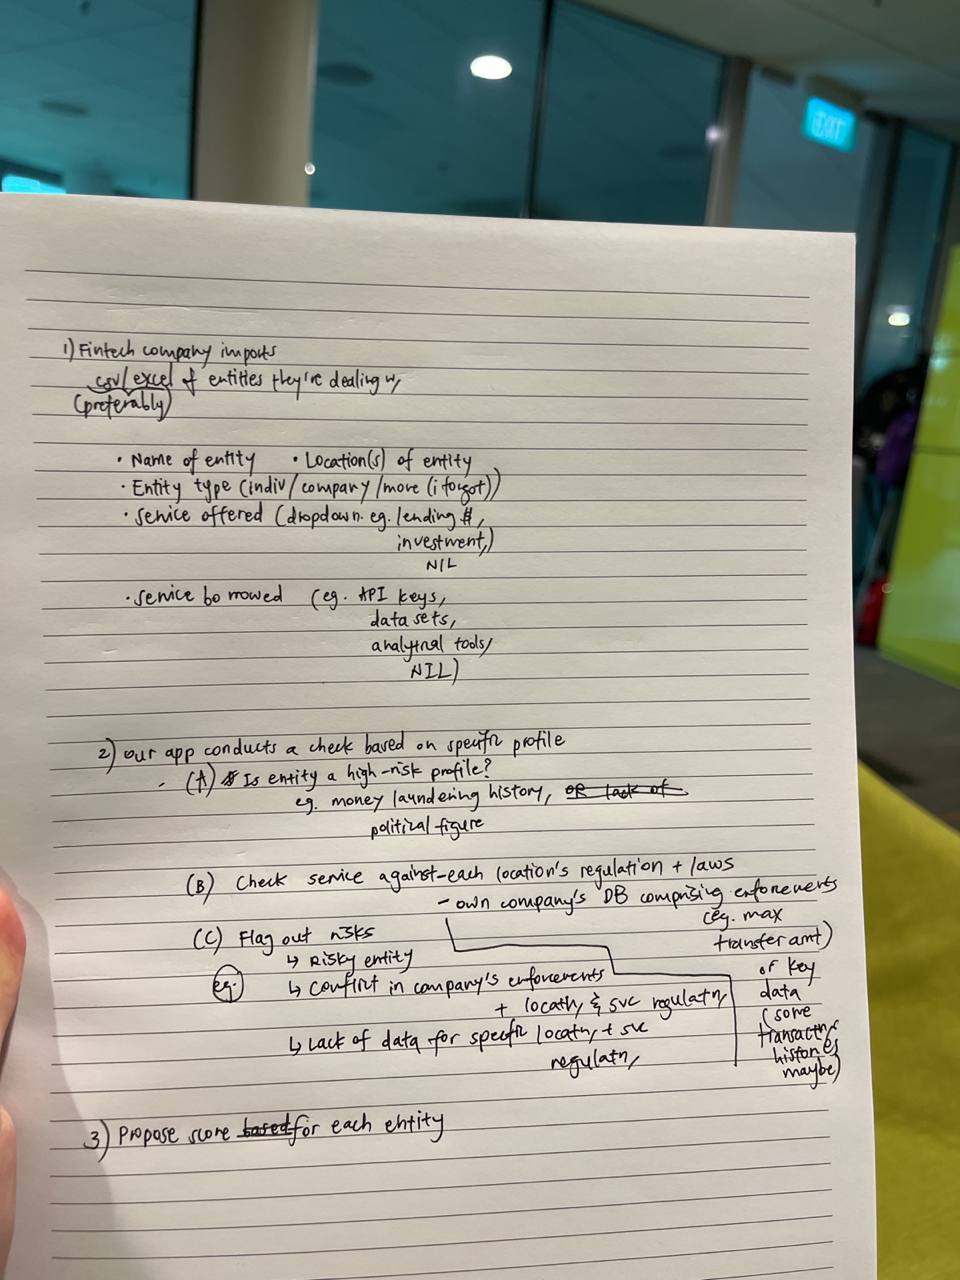 EXIT
1) Fintech company imports
csv/excel of entities they're dealing w/
(preferably)
• Name of entity • Location(s) of entity
• Entity type (indiv/company/more (i forgot))
• Service offered (dropdown. eg. lending $,
investment,)
NIL
• Service borrowed (eg. API keys,
data sets,
analytical tools,
NIL)
2) Our app conducts a check based on specific profile
- (A) Is entity a high-risk profile?
eg. money laundering history, or lack of
political figure
(B) Check service against each location's regulation + laws
- own company's DB comprising enforcements
(eg. max
transfer amt)
(C) Flag out risks
↳ Risky entity
eg.
↳ Conflict in company's enforcements
+ locatn, & svc regulatn,
↳ Lack of data for specific locatn, + svc
regulatn,
or key
data
(some
transactn,
histories
maybe)
3) Propose score based for each entity